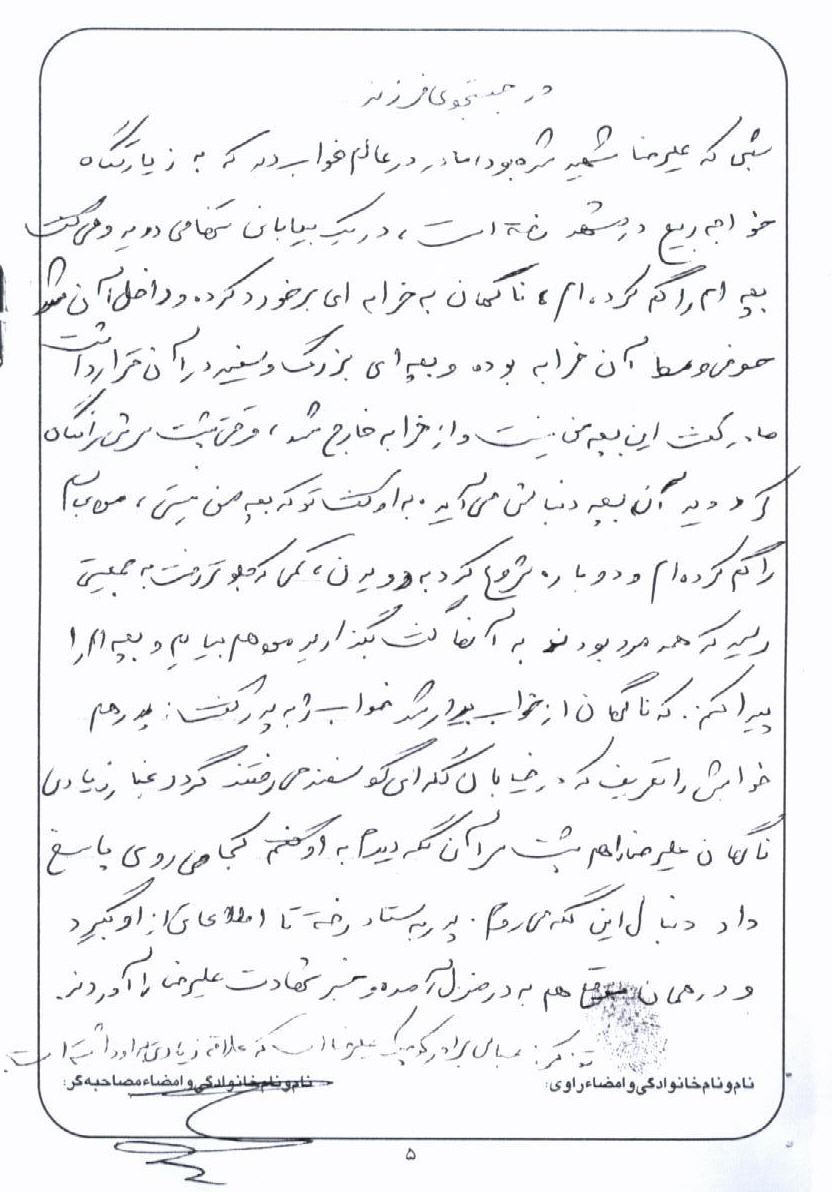 در جستجوی فرزند
شبی که علیرضا شهید شده بود مادر در عالم خواب دید که به زیارتگاه
خواجه ربیع در مشهد رفته است، در یک بیابانی تنها می دوید و می گفت
بچه ام را گم کرده ام، ناگهان به خرابه ای برخورد کرده و داخل آن شد
حوض وسط آن خرابه بوده و بچه ای بزرگ و سفید در آن قرار داشت
مادر گفت این بچه من نیست و از خرابه خارج شد، وقتی پشت سرش را نگاه
کرد دید آن بچه دنبالش می آید. به او گفت تو که بچه من نیستی، من
را گم کرده ام و دوباره شروع کرد به دویدن، کمی که جلوتر رفت به جمعیتی
رسید که همه مرد بودند به آنها گفت بگذارید من هم بیایم و بچه ام را
پیدا کنم. که ناگهان از خواب بیدار شد خواب را به پدر گفت: پدر هم
خوابش را تعریف که در خیابان گله ای گوسفند می رفتند گرد و غبار زیادی
ناگهان علیرضا را هم پشت سر آن گله دیدم به او گفتم کجا می روی پاسخ
داد دنبال این گله می روم. پدر به ستاد رفته تا اطلاعاتی از او بگیرد
و در همان موقع هم به در منزل آمده و خبر شهادت علیرضا را آوردند.
تذکر: عباس برادر کوچک علیرضا است که علاقه زیادی به او داشته است.
نام و نام خانوادگی و امضاء راوی: نام و نام خانوادگی و امضاء مصاحبه گر:
۵